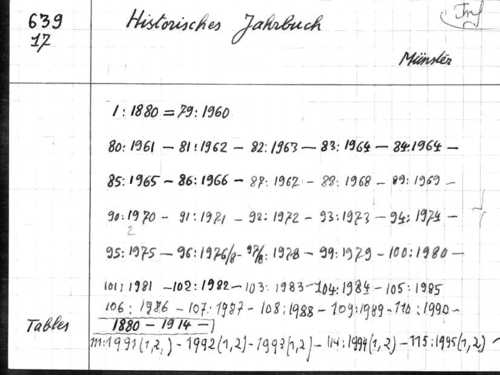 639
17
Historisches Jahrbuch
Münster
1:1880 = 79:1960
80:1961 – 81:1962 – 82:1963 – 83:1964 – 84:1964 –
85:1965 – 86:1966 – 87:1967 – 88:1968 – 89:1969 –
90:1970 – 91:1971 – 92:1972 – 93:1973 – 94:1974 –
2
95:1975 – 96:1976/8 – 97/8:1978 – 99:1979 – 100:1980 –
101:1981 – 102:1982 – 103:1983 – 104:1984 – 105:1985
106:1986 – 107:1987 – 108:1988 – 109:1989 – 110:1990 –
Tables 1880 – 1914 –
111:1991(1,2,) – 1992(1,2) – 1993(1,2) – 114:1994(1,2) – 115:1995(1,2) –